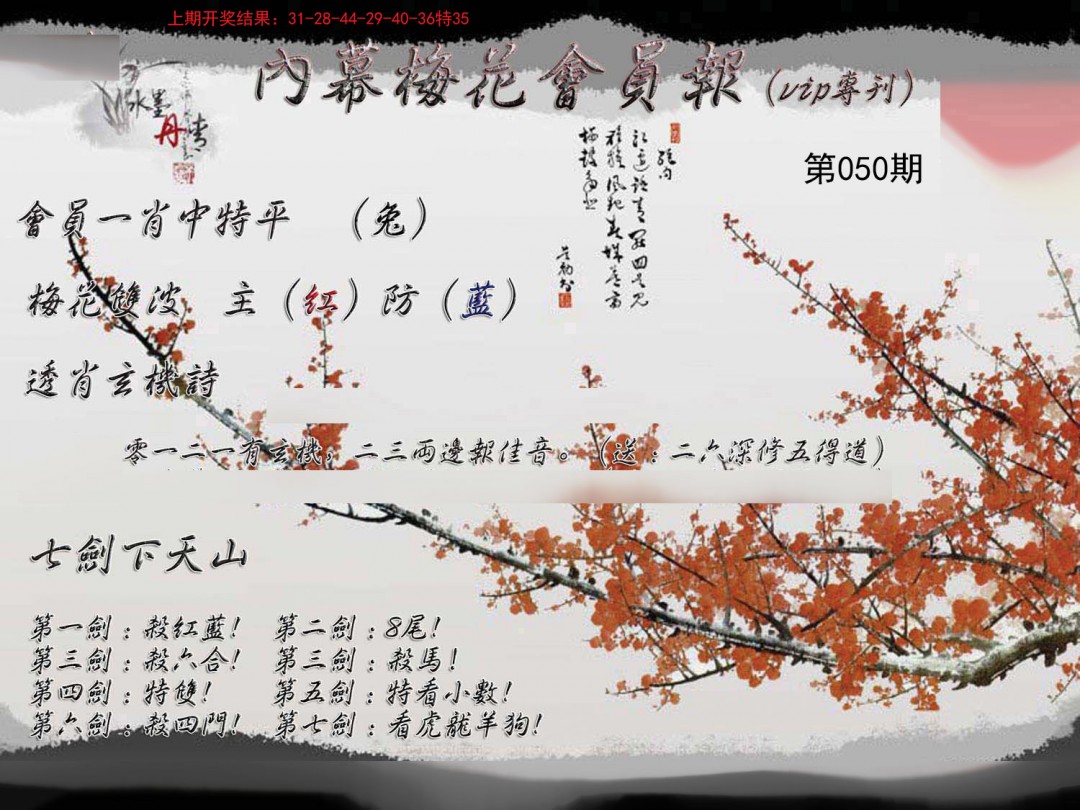 上期开奖结果：31-28-44-29-40-36特35
內幕梅花會員報（vip專刊）
水墨丹情
第050期
會員一肖中特平 （兔）
梅花雙波 主（紅）防（藍）
透肖玄機詩
零一二一有玄機，二三兩邊報佳音。（送：二六深修五得道）
七劍下天山
第一劍：殺紅藍！ 第二劍：8尾！
第三劍：殺六合！ 第三劍：殺馬！
第四劍：特雙！ 第五劍：特看小數！
第六劍：殺四門！ 第七劍：看虎龍羊狗！